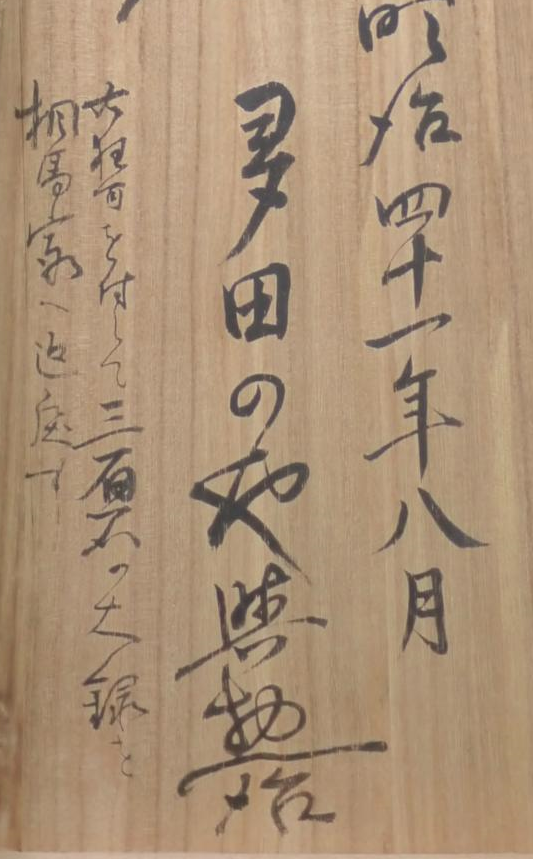 明治四十一年八月
多田のや與惣治
古狂百を付して三百石の大録を
相馬家へ返戻す